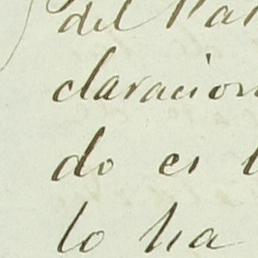 del Par
claracion
do es l
lo ha